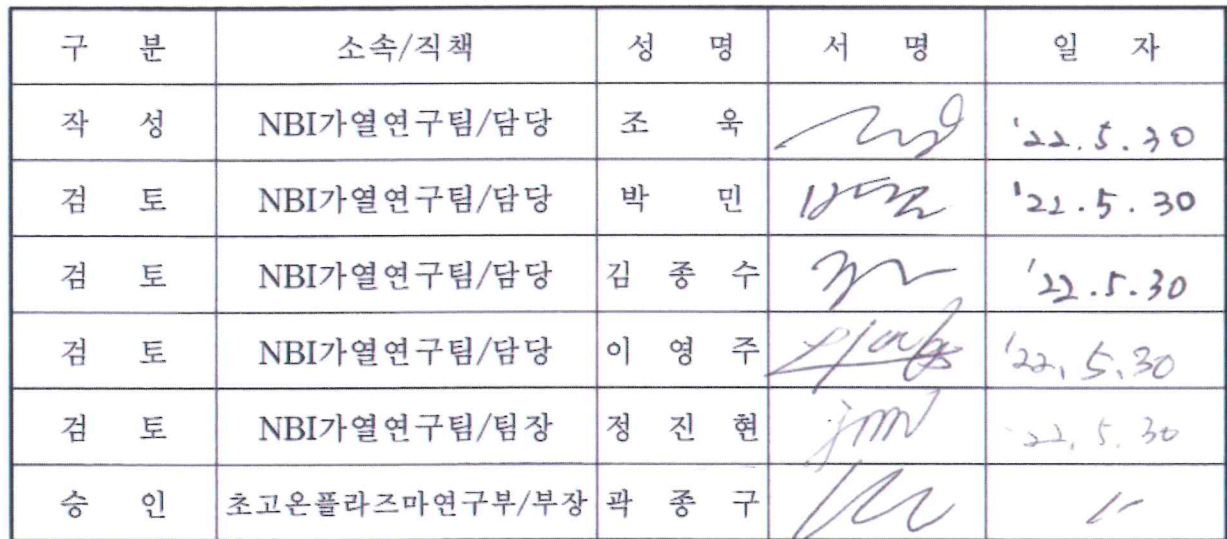 구 분 소속/직책 성 명 서 명 일 자
작 성 NBI가열연구팀/담당 조 욱 '22.5.30
검 토 NBI가열연구팀/담당 박 민 '22.5.30
검 토 NBI가열연구팀/담당 김 종 수 '22.5.30
검 토 NBI가열연구팀/담당 이 영 주 '22.5.30
검 토 NBI가열연구팀/팀장 정 진 현 '22.5.30
승 인 초고온플라즈마연구부/부장 곽 종 구